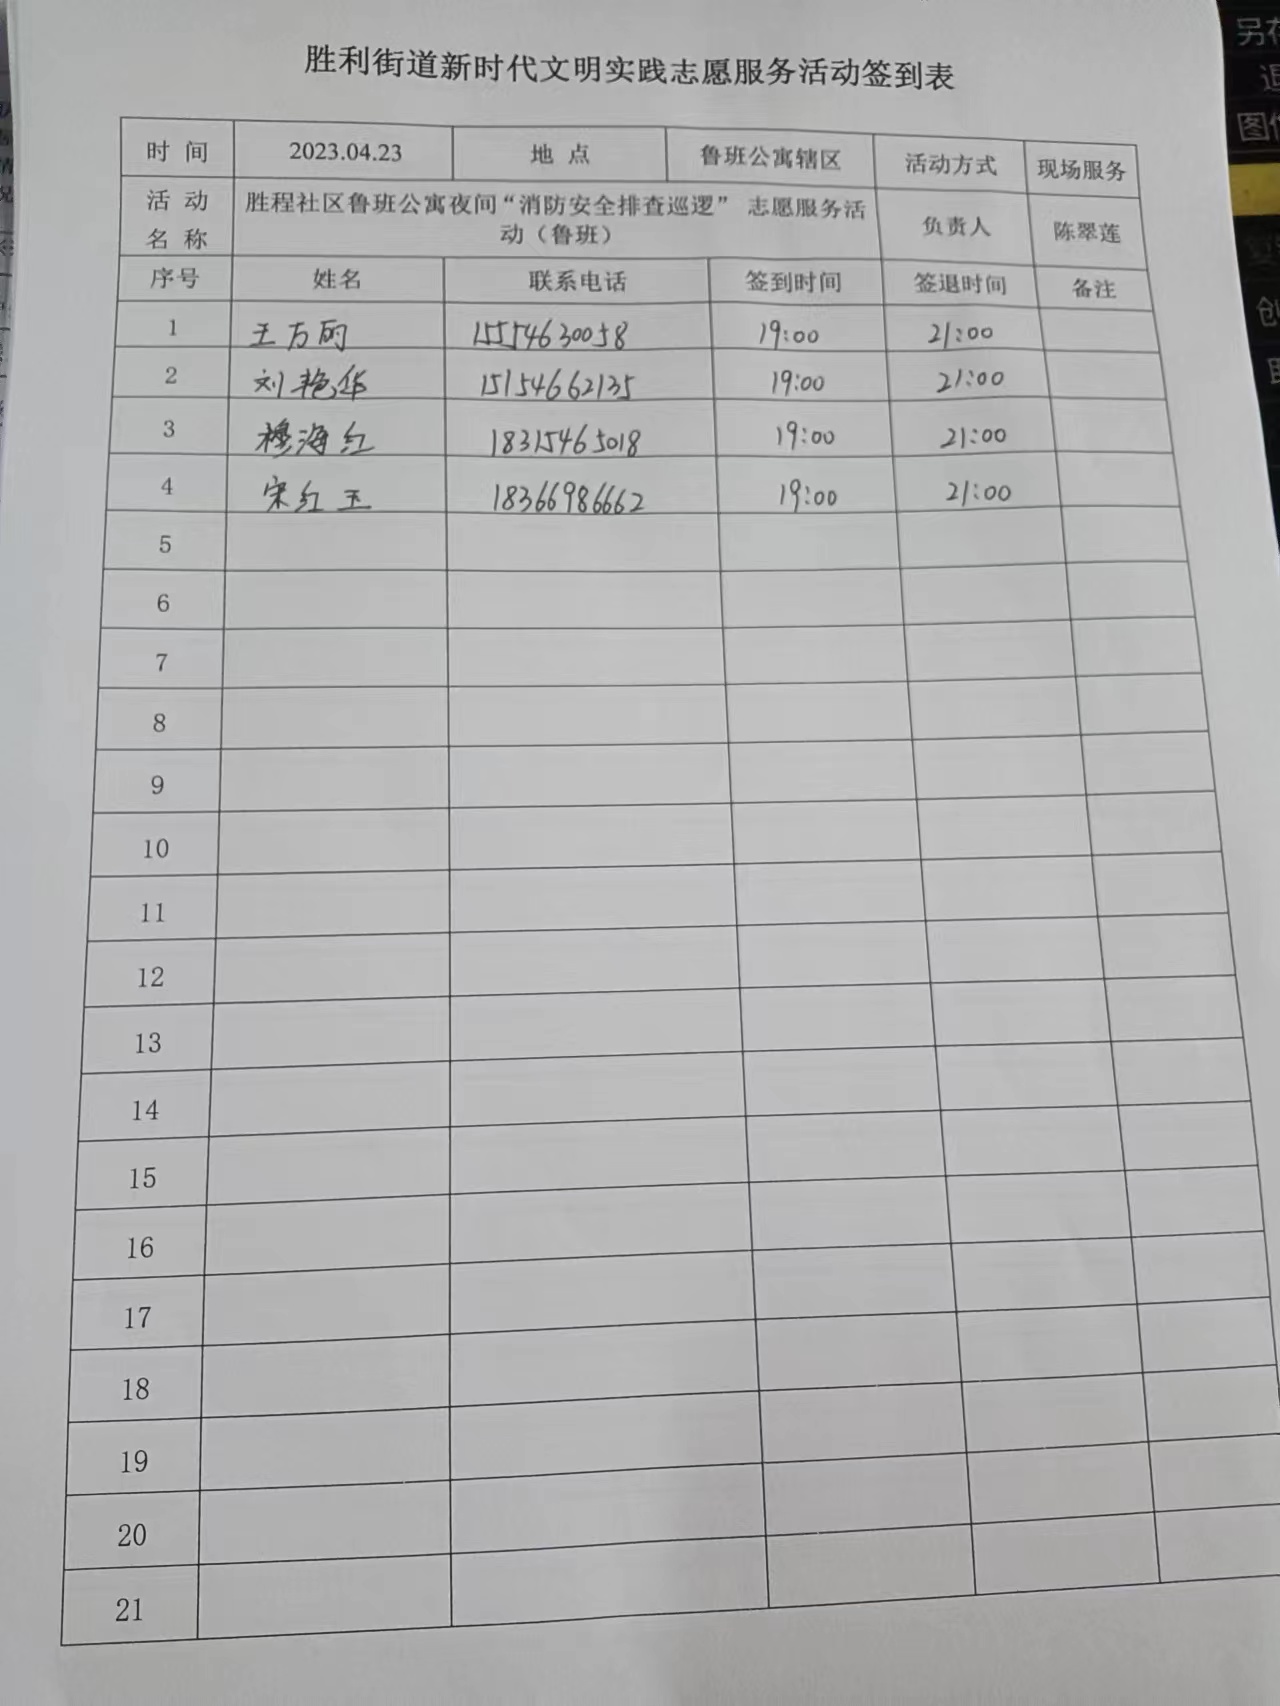 胜利街道新时代文明实践志愿服务活动签到表
时 间 2023.04.23 地 点 鲁班公寓辖区 活动方式 现场服务
活 动 名 称 胜程社区鲁班公寓夜间“消防安全排查巡逻” 志愿服务活动（鲁班） 负责人 陈翠莲
序号 姓名 联系电话 签到时间 签退时间 备注
1 王方丽 15554630058 19:00 21:00
2 刘艳华 15154662135 19:00 21:00
3 穆海红 18315465018 19:00 21:00
4 宋红玉 18366986662 19:00 21:00
5
6
7
8
9
10
11
12
13
14
15
16
17
18
19
20
21